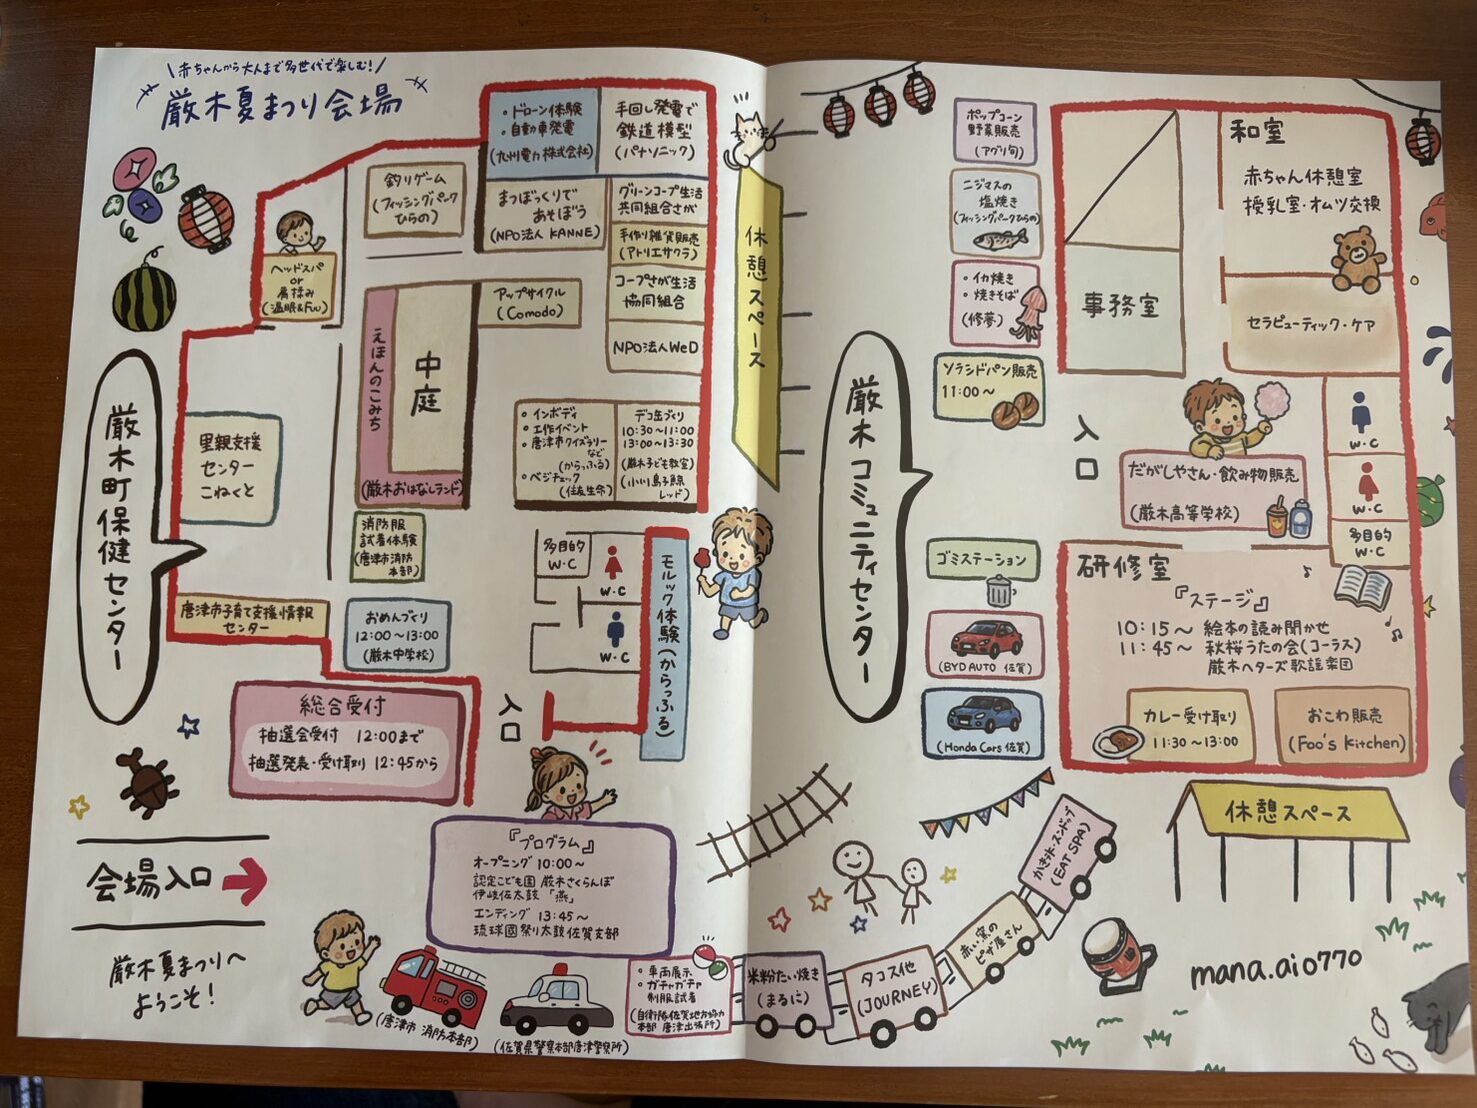 \赤ちゃんから大人まで多世代で楽しむ!/
厳木夏まつり会場
・ドローン体験
・自動車発電
(九州電力株式会社)
手回し発電で
鉄道模型
(パナソニック)
釣りゲーム
(フィッシングパーク
ひらの)
まつぼっくりで
あそぼう
(NPO法人 KANNE)
グリーンコープ生活
共同組合さが
手作り雑貨販売
(アトリエサクラ)
コープさが生活
協同組合
NPO法人WeD
ヘッドスパ
or
肩揉み
(温眠&Fuu)
アップサイクル
(Comodo)
えほんのこみち
中庭
(厳木おはなしランド)
・インボディ
・工作イベント
・唐津市クイズラリー
など
(からっふる)
・ベジチェック
(住友生命)
デコ缶づくり
10:30~11:00
13:00~13:30
(厳木子ども教室)
(小川島子鯨
レッド)
里親支援
センター
こねくと
厳木町保健センター
消防服
試着体験
(唐津市消防
本部)
多目的
W・C
W・C
W・C
モルック体験(からっふる)
唐津市子育て支援情報
センター
おめんづくり
12:00~13:00
(厳木中学校)
総合受付
抽選会受付 12:00まで
抽選発表・受け取り 12:45から
入口
会場入口
厳木夏まつりへ
ようこそ!
『プログラム』
オープニング 10:00~
認定こども園 厳木さくらんぼ
伊岐佐太鼓「燕」
エンディング 13:45~
琉球國祭り太鼓佐賀支部
(唐津市 消防本部)
(佐賀県警察本部唐津警察所)
・車両展示
・ガチャガチャ
制服試着
(自衛隊佐賀地方協力
本部 唐津出張所)
休憩スペース
ポップコーン
野菜販売
(アグリ旬)
ニジマスの
塩焼き
(フィッシングパークひらの)
・イカ焼き
・焼きそば
(修夢)
ソラシドパン販売
11:00~
厳木コミュニティセンター
事務室
和室
赤ちゃん休憩室
授乳室・オムツ交換
セラピューティック・ケア
入口
だがしやさん・飲み物販売
(厳木高等学校)
W・C
W・C
多目的
W・C
ゴミステーション
(BYD AUTO 佐賀)
(Honda Cars 佐賀)
研修室
『ステージ』
10:15~ 絵本の読み聞かせ
11:45~ 秋桜うたの会(コーラス)
厳木ヘターズ歌謡楽団
カレー受け取り
11:30~13:00
おこわ販売
(Foo's Kitchen)
休憩スペース
かき氷・スンドゥブ
(EAT SPA)
赤い窯の
ピザ屋さん
タコス他
(JOURNEY)
米粉たい焼き
(まるに)
mana.aio770